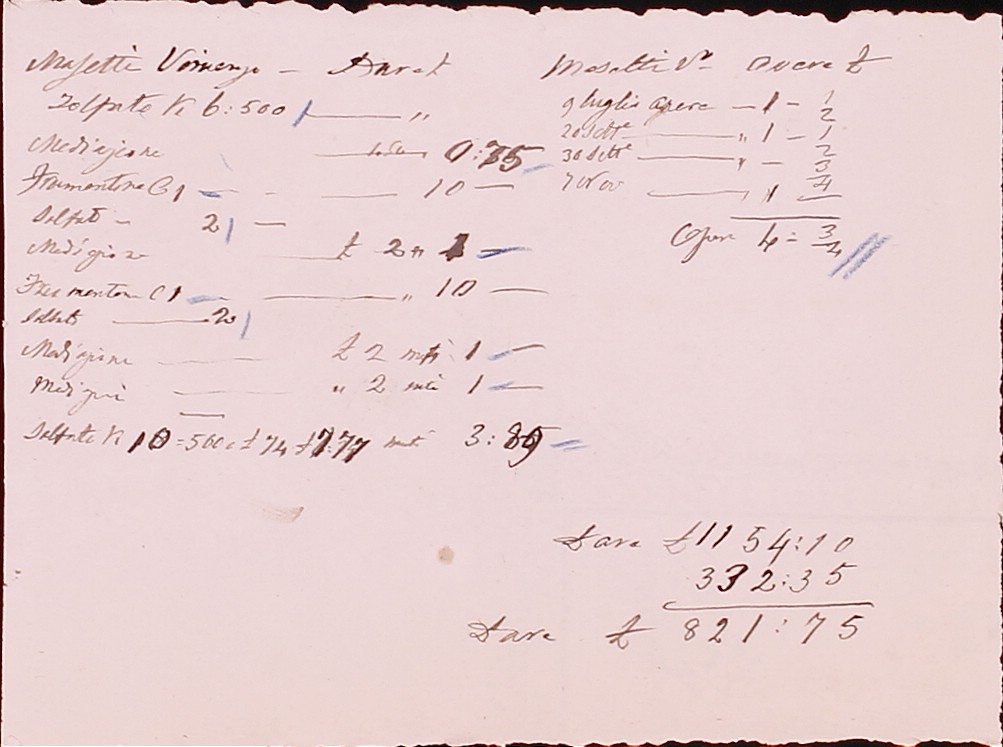 Masetti Vincenzo — Dare £
Solfato K 6:500 — "
Mediazione — 0:75
Frumentone C 1 — 10 —
Solfato — 2 —
Mediazione — £ 2 1 —
Frumentone C 1 — " 10 —
Solfato — 20
Mediazione — £ 2 metà 1 —
— " 2 metà 1 —
Solfato K 10=500 a £ 74 £ 7:77 metà 3:89
Masetti V° Avere £
9 luglio opere — 1 — 1/2
20 Sett^e — " 1 — 1/2
30 Sett^e — " — 3/4
7 Nov — " 1
Opere 4 = 3/4
Dare £ 1154:10
332:35
Dare £ 821:75